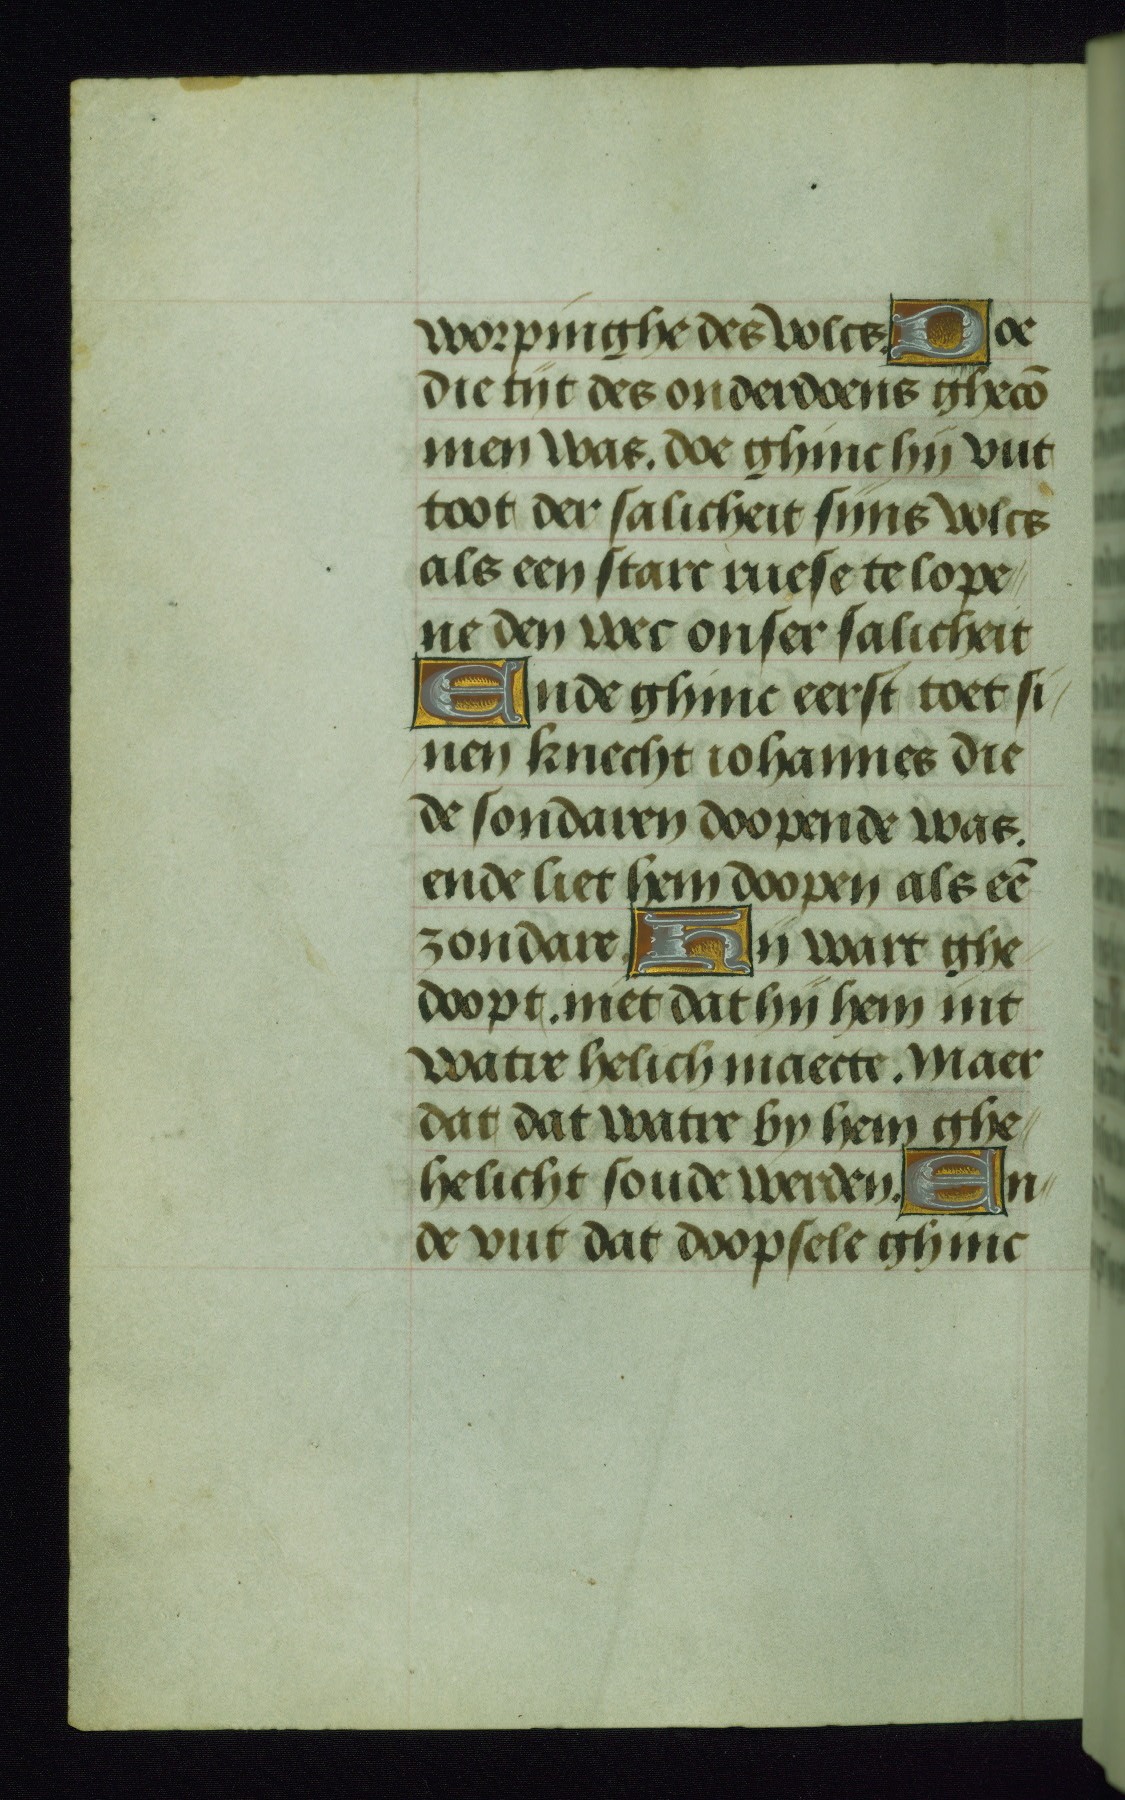 worpinghe des volcs. Doe
die tijt des onderdoens ghecō
men was. doe ghinc hij vut
toot der salicheit sijns volcs
als een starc ruese te lope//
ne den wec onser salicheit
Ende ghinc eerst toet si//
nen knecht iohannes die
de sondaren doopende was.
ende liet hem doopen als eē
zondare. Hij wart ghe//
doopt. niet dat hij hem int
watre helich maecte. Maer
dat dat watre by hem ghe//
helicht soude werden. En//
de vut dat doopsele ghinc